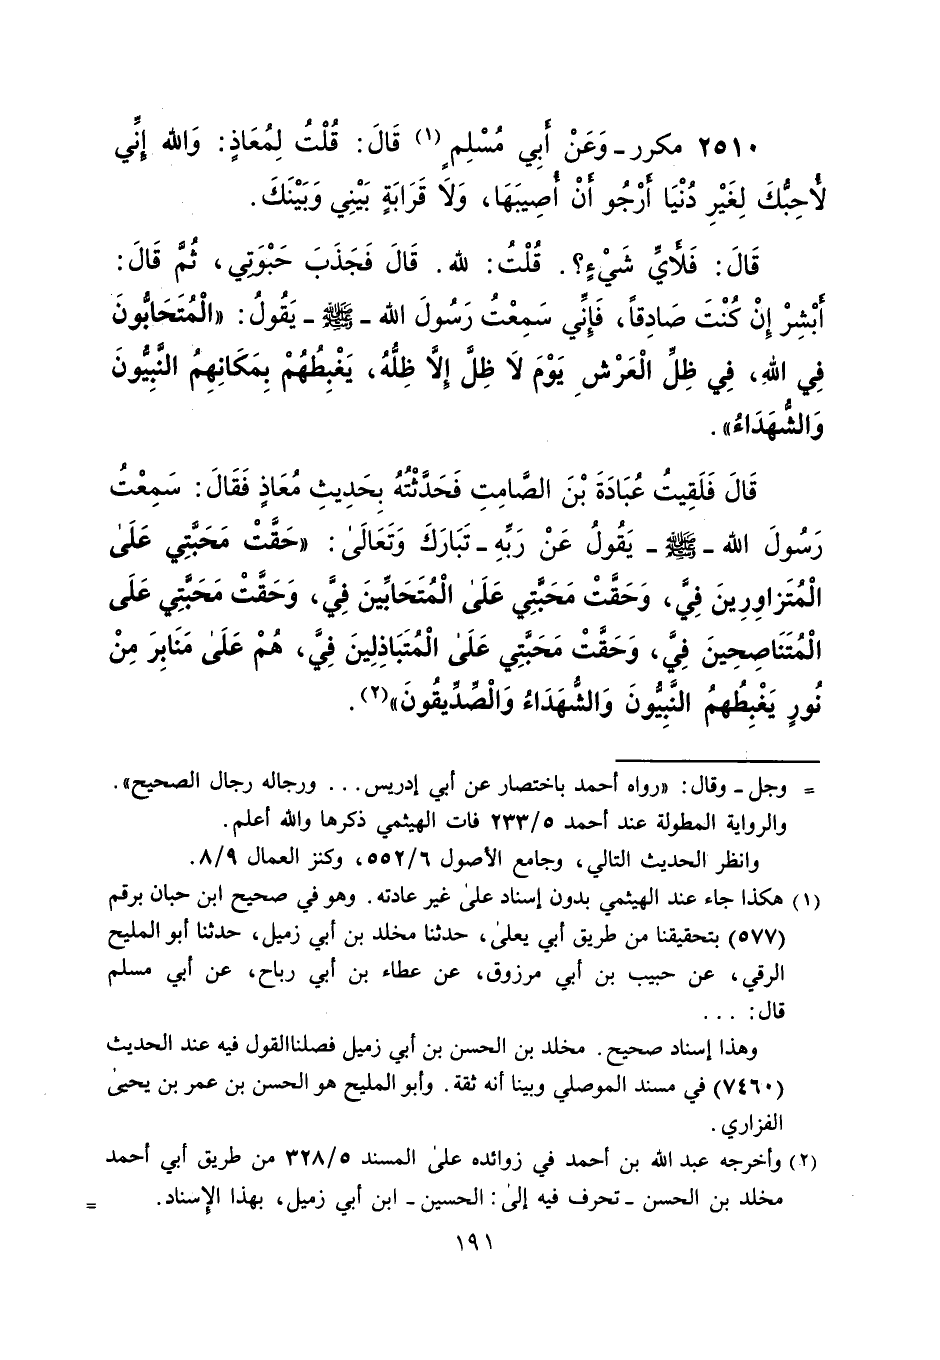 ٢٥١٠ مكرر ـ وَعَنْ أَبِي مُسْلِمٍ (١) قَالَ: قُلْتُ لِمُعَاذٍ: وَالله إِنِّي
لأُحِبُّكَ لِغَيْرِ دُنْيَا أَرْجُو أَنْ أُصِيبَهَا، وَلَا قَرَابَةٍ بَيْنِي وَبَيْنَكَ.
قَالَ: فَلَأَيِّ شَيْءٍ؟. قُلْتُ: لله. قَالَ فَجَذَبَ حَبْوَتِي، ثُمَّ قَالَ:
أَبْشِرْ إِنْ كُنْتَ صَادِقاً، فَإِنِّي سَمِعْتُ رَسُولَ الله ـ ﷺ ـ يَقُولُ: «الْمُتَحَابُّونَ
فِي اللهِ، فِي ظِلِّ الْعَرْشِ يَوْمَ لَا ظِلَّ إِلَّا ظِلُّهُ، يَغْبِطُهُمْ بِمَكَانِهِمُ النَّبِيُّونَ
وَالشُّهَدَاءُ».
قَالَ فَلَقِيتُ عُبَادَةَ بْنَ الصَّامِتِ فَحَدَّثْتُهُ بِحَدِيثِ مُعَاذٍ فَقَالَ: سَمِعْتُ
رَسُولَ الله ـ ﷺ ـ يَقُولُ عَنْ رَبِّهِ ـ تَبَارَكَ وَتَعَالَىٰ: «حَقَّتْ مَحَبَّتِي عَلَىٰ
الْمُتَزاوِرِينَ فِيَّ، وَحَقَّتْ مَحَبَّتِي عَلَىٰ الْمُتَحَابِّينَ فِيَّ، وَحَقَّتْ مَحَبَّتِي عَلَى
الْمُتَنَاصِحِينَ فِيَّ، وَحَقَّتْ مَحَبَّتِي عَلَىٰ الْمُتَبَاذِلِينَ فِيَّ، هُمْ عَلَىٰ مَنَابِرَ مِنْ
نُورٍ يَغْبِطُهمُ النَّبِيُّونَ وَالشُّهَدَاءُ وَالْصِّدِّيقُونَ»(٢).
= وجل ـ وقال: «رواه أحمد باختصار عن أبي إدريس... ورجاله رجال الصحيح».
والرواية المطولة عند أحمد ٢٣٣/٥ فات الهيثمي ذكرها والله أعلم.
وانظر الحديث التالي، وجامع الأصول ٥٥٢/٦، وكنز العمال ٨/٩.
(١) هكذا جاء عند الهيثمي بدون إسناد علىٰ غير عادته. وهو في صحيح ابن حبان برقم
(٥٧٧) بتحقيقنا من طريق أبي يعلىٰ، حدثنا مخلد بن أبي زميل، حدثنا أبو المليح
الرقي، عن حبيب بن أبي مرزوق، عن عطاء بن أبي رباح، عن أبي مسلم
قال: ...
وهذا إسناد صحيح. مخلد بن الحسن بن أبي زميل فصلناالقول فيه عند الحديث
(٧٤٦٠) في مسند الموصلي وبينا أنه ثقة. وأبو المليح هو الحسن بن عمر بن يحيىٰ
الفزاري.
(٢) وأخرجه عبد الله بن أحمد في زوائده علىٰ المسند ٣٢٨/٥ من طريق أبي أحمد
مخلد بن الحسن ـ تحرف فيه إلىٰ: الحسين ـ ابن أبي زميل، بهذا الإسناد. =
١٩١